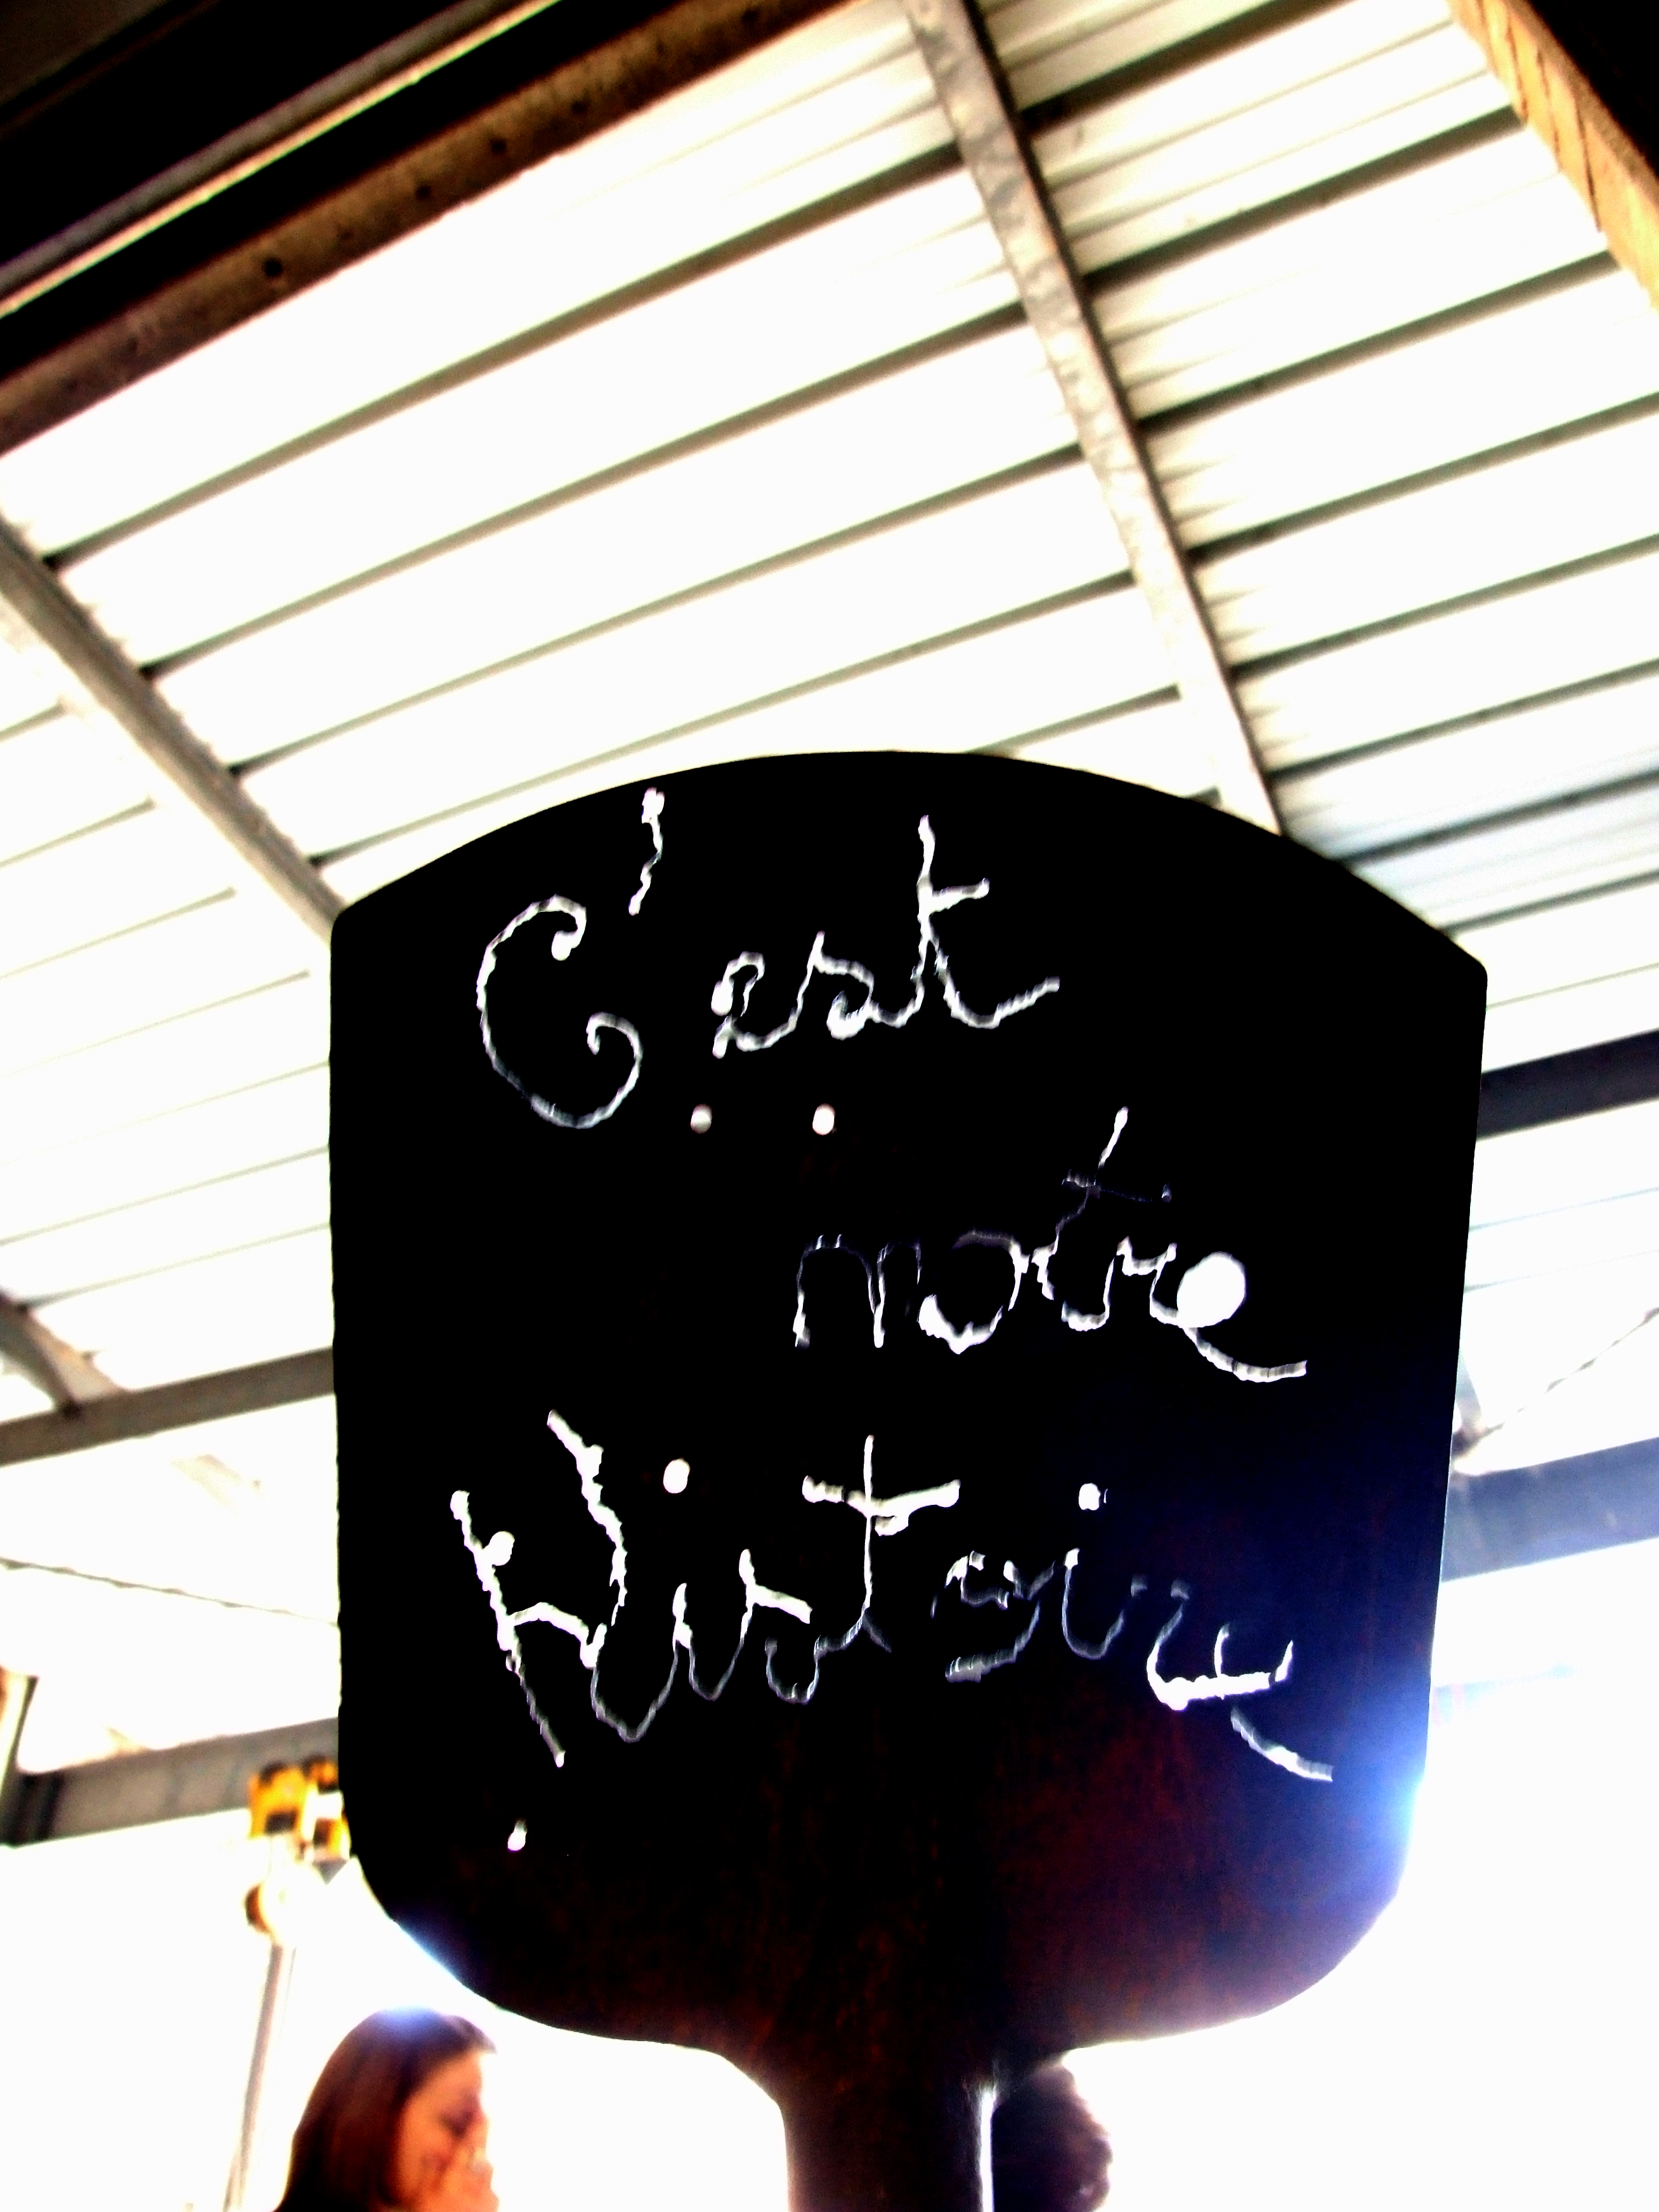 C'est
notre
Histoire